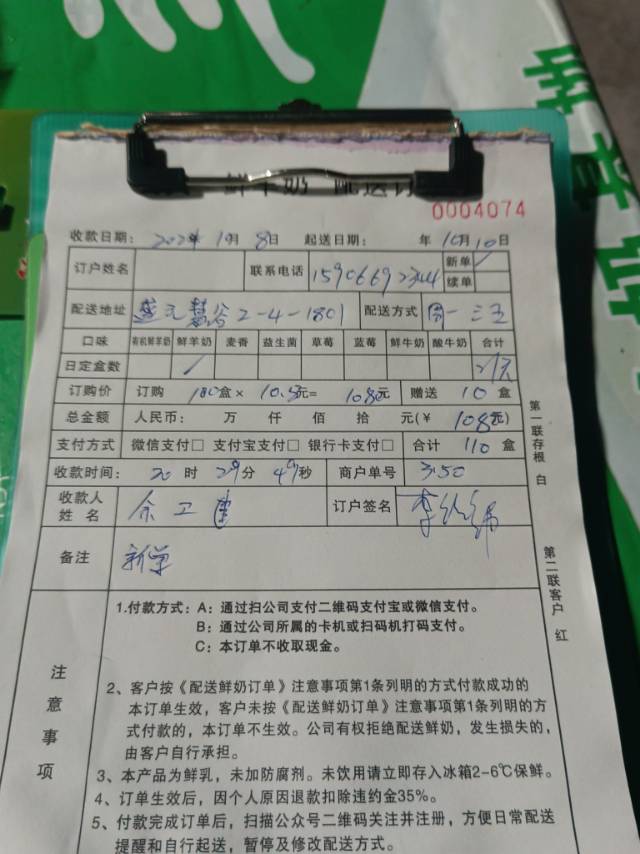 鲜羊奶 配送订
0004074
收款日期： 2024年10月8日 起送日期： 年10月10日
订户姓名 联系电话 新单 ✓
续单
配送地址 2-4-1801 配送方式 周一三五
口味 有机鲜羊奶 鲜羊奶 麦香 益生菌 草莓 蓝莓 鲜牛奶 酸牛奶 合计
日定盒数 ✓
订购价 订购 100盒× 10.8元= 1080元 赠送 10盒
总金额 人民币： 万 仟 佰 拾 元(￥ 1080元)
支付方式 微信支付□ 支付宝支付□ 银行卡支付□ 合计 110盒
收款时间： 20时 29分 49秒 商户单号 3150
收款人姓名 余卫建 订户签名
备注 新单
第一联存根 白
第二联客户 红
注意事项
1.付款方式：A：通过扫公司支付二维码支付宝或微信支付。
B：通过公司所属的卡机或扫码机打码支付。
C：本订单不收取现金。
2、客户按《配送鲜奶订单》注意事项第1条列明的方式付款成功的
本订单生效，客户未按《配送鲜奶订单》注意事项第1条列明的方
式付款的，本订单不生效。公司有权拒绝配送鲜奶，发生损失的，
由客户自行承担。
3、本产品为鲜乳，未加防腐剂。未饮用请立即存入冰箱2-6℃保鲜。
4、订单生效后，因个人原因退款扣除违约金35%。
5、付款完成订单后，扫描公众号二维码关注并注册，方便日常配送
提醒和自行起送，暂停及修改配送方式。